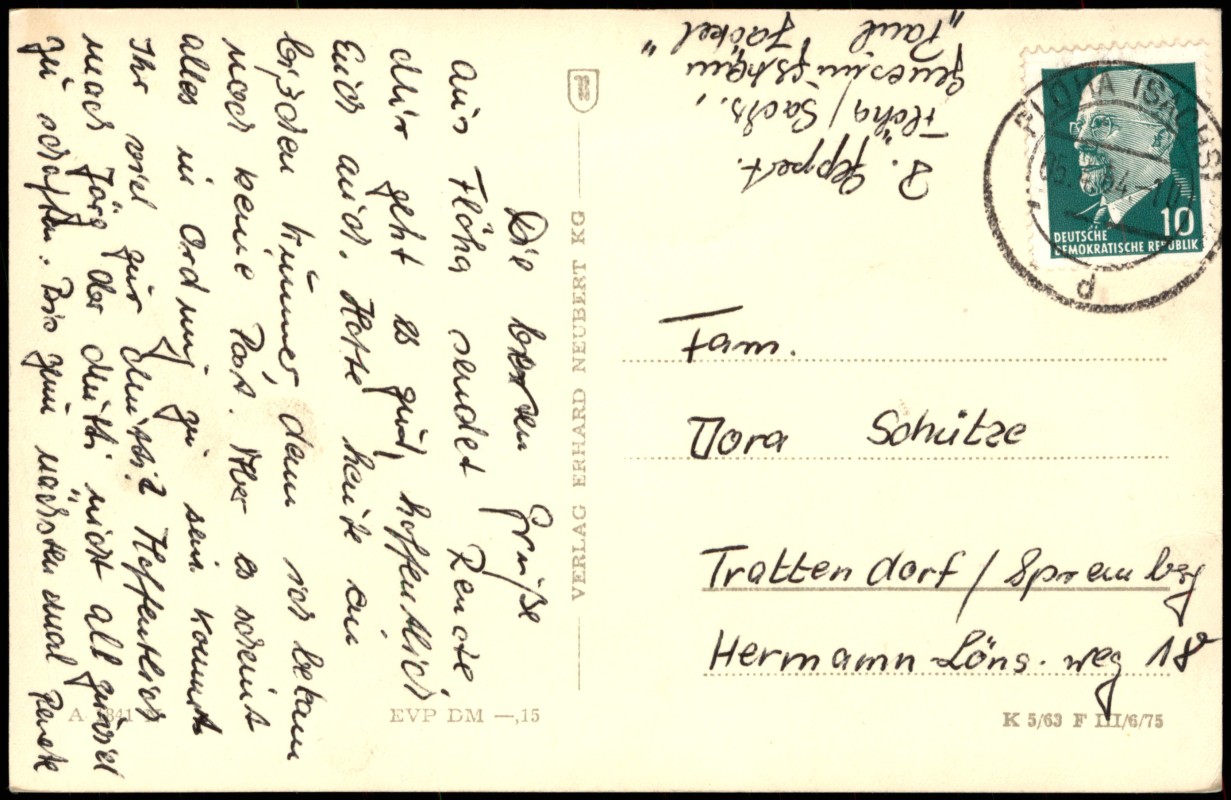 Die besten Grüße
aus Flöha sendet Renate,
Mir geht es gut, hoffentlich
Euch auch. Hatte heute ein
bißchen Kummer, denn ich bekam
noch keine Post. Aber es scheint
alles in Ordnung zu sein. Kommt
Ihr viel zur Musik? Hoffentlich
macht Jörg der Mutti nicht all zuviel
zu schaffen. Bis zum nächsten mal Renate
VERLAG ERHARD NEUBERT KG
A 1841
EVP DM —,15
R. Seppert
Flöha / Sachs.,
Genesungsheim
"Paul Jäckel"
FLÖHA (SACHS)
d
10
DEUTSCHE
DEMOKRATISCHE REPUBLIK
Fam.
Dora Schütze
Trattendorf / Spremberg
Hermann-Löns-weg 18
K 5/63 F III/6/75